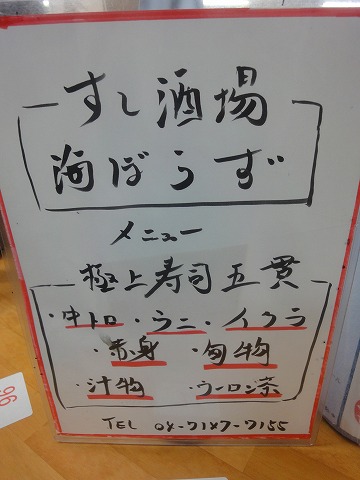 すし酒場
海ぼうず
メニュー
極上寿司五貫
・中トロ・ウニ・イクラ
・赤身・旬物
・汁物・ウーロン茶
TEL 04-7187-7155